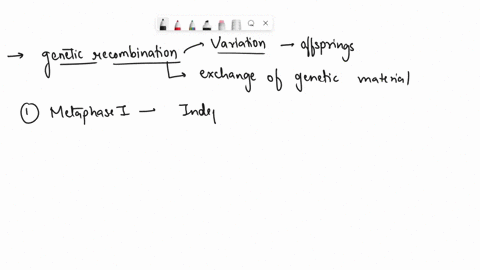 → genetic recombination Variation → offsprings
exchange of genetic material
① Metaphase I — Indep